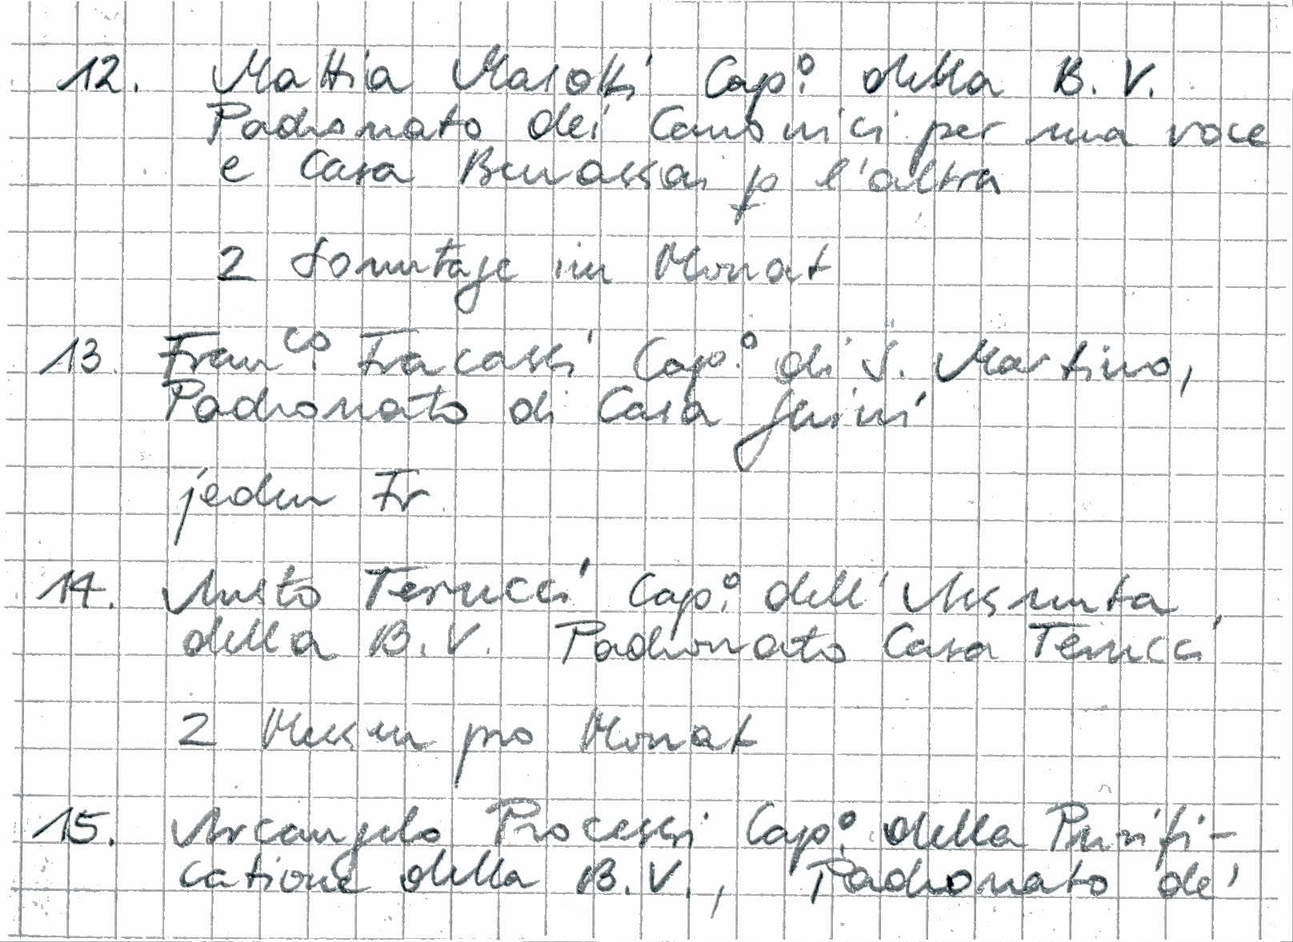 12. Mattia Masotti Cap.o della B. V.
Padronato dei Canonici per una voce
e Casa Benassai p l'altra
2 Sonntage im Monat
13. Fran.co Fracassi Cap.o di S. Martino,
Padronato di Casa
jeden Fr.
14. Cap.o dell'Assunta
della B. V. Padronato Casa
2 Messen pro Monat
15. Arcangelo Processi Cap.o della Purifi-
catione della B. V., Padronato de'